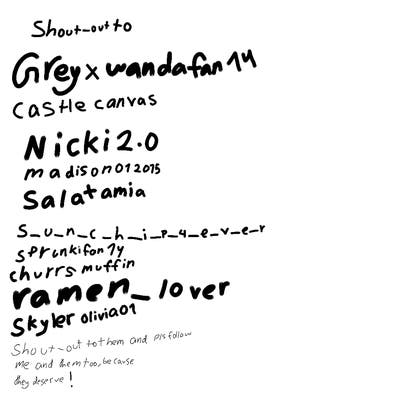 Shout-out to
Greyxwandafan14
Castle canvas
Nicki2.0
madison012015
Salatamia
S_u_n_c_h_i_p_4_e_v_e_r
sprunkifan1y
churrs muffin
ramen_lover
Skyler olivia01
Shout-out to them and pls follow
me and them too, because
they deserve!